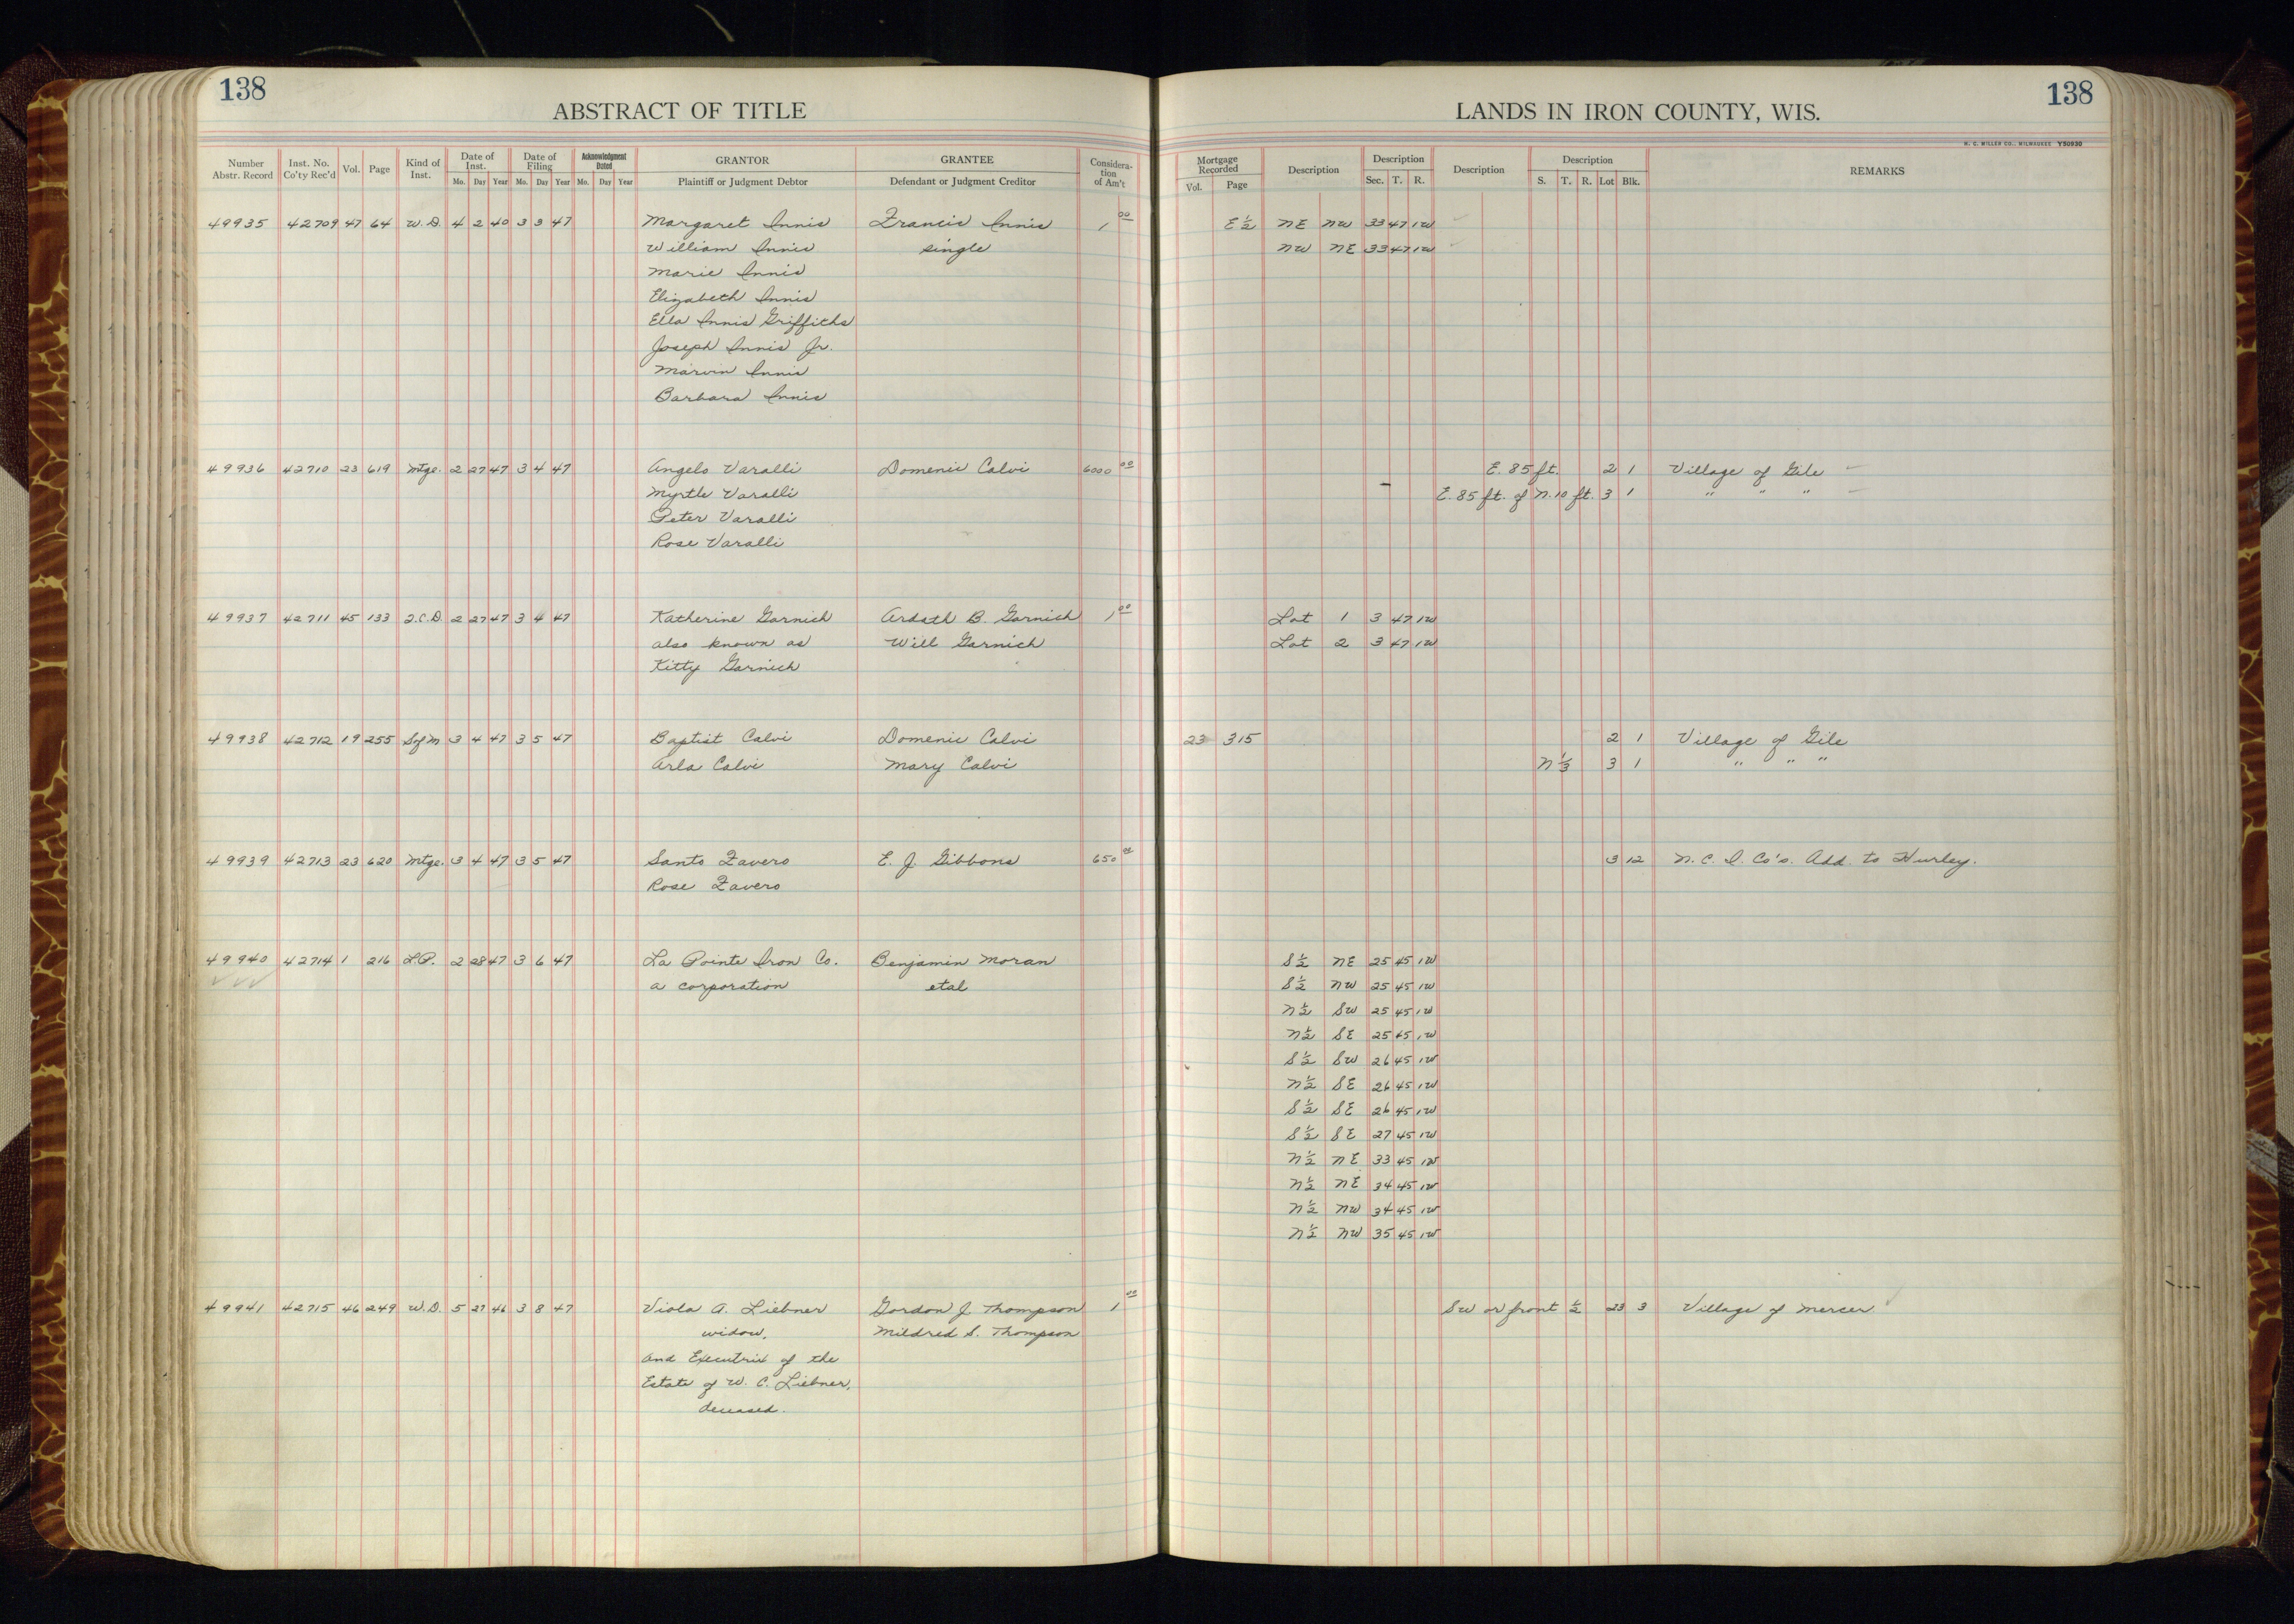 138
ABSTRACT OF TITLE
LANDS IN IRON COUNTY, WIS.
138
H. C. MILLER CO., MILWAUKEE Y50930
Number Abstr. Record Inst. No. Co'ty Rec'd Vol. Page Kind of Inst. Date of Inst. Mo. Day Year Date of Filing Mo. Day Year Acknowledgment Dated Mo. Day Year GRANTOR Plaintiff or Judgment Debtor GRANTEE Defendant or Judgment Creditor Considera-tion of Am't Mortgage Recorded Vol. Page Description Description Sec. T. R. Description Description S. T. R. Lot Blk. REMARKS
49935 42709 47 64 W.D. 4 2 40 3 3 47 Margaret Innis Francis Innis 1 00 E½ NE NW 33 47 1W
William Innis single NW NE 33 47 1W
Marie Innis
Elizabeth Innis
Ella Innis Griffiths
Joseph Innis Jr.
Marvin Innis
Barbara Innis
49936 42710 23 619 Mtge. 2 27 47 3 4 47 Angelo Varalli Domenic Calvi 6000 00 E. 85 ft. 2 1 Village of Gile
Myrtle Varalli E. 85 ft. of N. 10 ft. 3 1 " " "
Peter Varalli
Rose Varalli
49937 42711 45 133 Q.C.D. 2 27 47 3 4 47 Katherine Garnich Ardath B. Garnich 1 00 Lot 1 3 47 1W
also known as Will Garnich Lot 2 3 47 1W
Kitty Garnich
49938 42712 19 255 S of M 3 4 47 3 5 47 Baptist Calvi Domenic Calvi 23 315 2 1 Village of Gile
Arla Calvi Mary Calvi N ⅓ 3 1 " " "
49939 42713 23 620 Mtge. 3 4 47 3 5 47 Santo Zavero E. J. Gibbons 650 00 3 12 N. C. I. Co's. Add. to Hurley.
Rose Zavero
49940 42714 1 216 L.P. 2 28 47 3 6 47 La Pointe Iron Co. Benjamin Moran S½ NE 25 45 1W
a corporation etal S½ NW 25 45 1W
N½ SW 25 45 1W
N½ SE 25 45 1W
S½ SW 26 45 1W
N½ SE 26 45 1W
S½ SE 26 45 1W
S½ SE 27 45 1W
N½ NE 33 45 1W
N½ NE 34 45 1W
N½ NW 34 45 1W
N½ NW 35 45 1W
49941 42715 46 249 W.D. 5 27 46 3 8 47 Viola A. Liebner Gordon J Thompson 1 00 SW or front ½ 23 3 Village of Mercer
widow, Mildred S. Thompson
and Executrix of the
Estate of W. C. Liebner,
deceased.